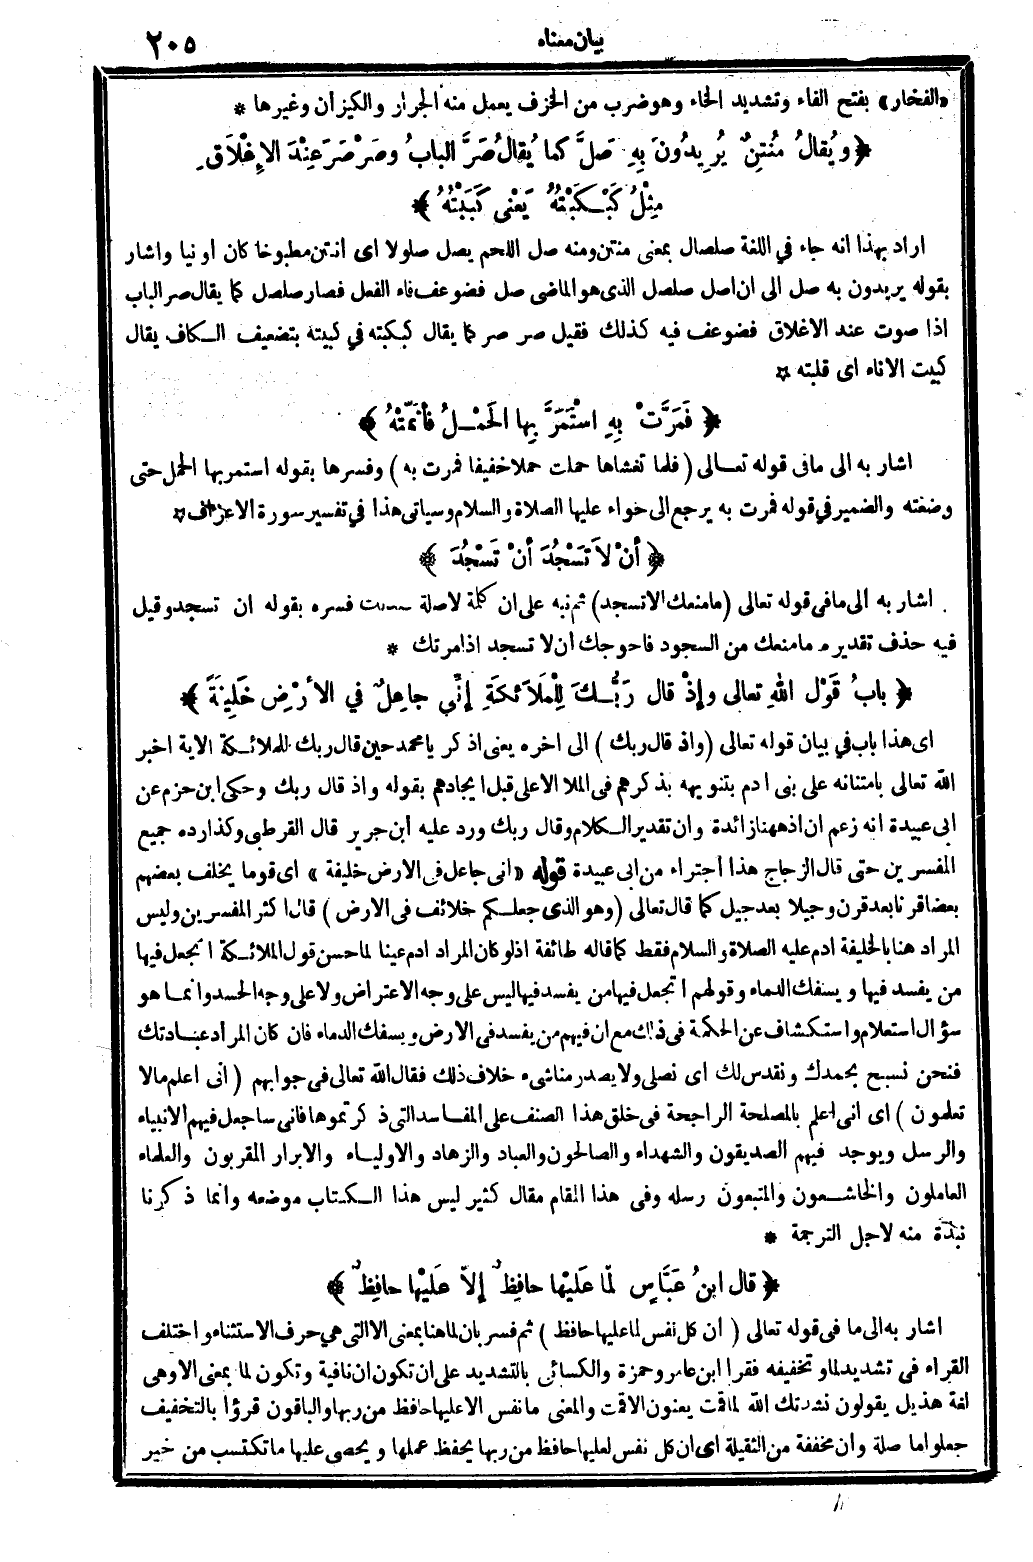 بيان معناه ٢٠٥
«الفخار» بفتح الفاء وتشديد الخاء وهو ضرب من الخزف يعمل منه الجرار والكيزان وغيرها *
﴿ ويُقالُ مُنْتِنٌ يُرِيدُونَ بِهِ صَلَّ كما يُقالُ صَرَّ البابُ وصَرْصَرَ عِنْدَ الإِغْلاَقِ
مِثْلُ كَبْكَبْتُهُ يَعْنِى كَبَبْتُهُ ﴾
اراد بهذا انه جاء في اللغة صلصال بمعنى منتن ومنه صل اللحم يصل صلولا اى انتن مطبوخا كان او نيا واشار
بقوله يريدون به صل الى ان اصل صلصل الذى هو الماضى صل فضوعف فاء الفعل فصار صلصل كما يقال صر الباب
اذا صوت عند الاغلاق فضوعف فيه كذلك فقيل صر صر كما يقال كبكبته في كببته بتضعيف الكاف يقال
كببت الاناء اى قلبته *
﴿ فَمَرَّتْ بِهِ اسْتَمَرَّ بِها الحَمْلُ فأتَمَّتْهُ ﴾
اشار به الى ما فى قوله تعالى (فلما تغشاها حملت حملا خفيفا فمرت به) وفسرها بقوله استمر بها الحمل حتى
وضعته والضمير في قوله فمرت به يرجع الى حواء عليها الصلاة والسلام وسياتى هذا في تفسير سورة الاعراف *
﴿ أنْ لاَ تَسْجُدَ أنْ تَسْجُدَ ﴾
اشار به الى ما في قوله تعالى (ما منعك الا تسجد) ثم نبه على ان كلمة لا صلة فسره بقوله ان تسجد وقيل
فيه حذف تقديره ما منعك من السجود فاحوجك ان لا تسجد اذ امرتك *
﴿ بابُ قَوْلِ اللهِ تعالى وإِذْ قال رَبُّكَ لِلْمَلاَئِكَةِ إنِّي جاعِلٌ في الأَرْضِ خَلِيفَةً ﴾
اى هذا باب في بيان قوله تعالى (واذ قال ربك) الى اخره يعنى اذكر يا محمد حين قال ربك للملائكة الاية اخبر
الله تعالى بامتنانه على بنى ادم بتنويهه بذكرهم فى الملا الاعلى قبل ايجادهم بقوله واذ قال ربك وحكى ابن حزم عن
ابى عبيدة انه زعم ان اذ ههنا زائدة وان تقدير الكلام وقال ربك ورد عليه ابن جرير قال القرطبى وكذا رده جميع
المفسرين حتى قال الزجاج هذا اجتراء من ابى عبيدة قوله «انى جاعل فى الارض خليفة» اى قوما يخلف بعضهم
بعضا قرنا بعد قرن وجيلا بعد جيل كما قال تعالى (وهو الذى جعلكم خلائف فى الارض) قال اكثر المفسرين وليس
المراد هنا بالخليفة ادم عليه الصلاة والسلام فقط كما قاله طائفة اذ لو كان المراد ادم عينا لما حسن قول الملائكة اتجعل فيها
من يفسد فيها ويسفك الدماء وقولهم اتجعل فيها من يفسد فيها ليس على وجه الاعتراض ولا على وجه الحسد وانما هو
سؤال استعلام واستكشاف عن الحكمة فى ذلك مع ان فيهم من يفسد فى الارض ويسفك الدماء فان كان المراد عبادتك
فنحن نسبح بحمدك ونقدس لك اى نصلى ولا يصدر منا شىء خلاف ذلك فقال الله تعالى فى جوابهم (انى اعلم ما لا
تعلمون) اى انى اعلم بالمصلحة الراجحة فى خلق هذا الصنف على المفاسد التى ذكرتموها فانى ساجعل فيهم الانبياء
والرسل ويوجد فيهم الصديقون والشهداء والصالحون والعباد والزهاد والاولياء والابرار المقربون والعلماء
العاملون والخاشعون والمتبعون رسله وفى هذا المقام مقال كثير ليس هذا الكتاب موضعه وانما ذكرنا
نبذة منه لاجل الترجمة *
﴿ قال ابنُ عَبَّاسٍ لَمَّا عَلَيْها حافِظٌ إِلاَّ عَلَيْها حافِظٌ ﴾
اشار به الى ما فى قوله تعالى (ان كل نفس لما عليها حافظ) ثم فسر بان لما هنا بمعنى الا التى هي حرف الاستثناء واختلف
القراء في تشديد لما وتخفيفه فقرا ابن عامر وحمزة والكسائى بالتشديد على ان تكون ان نافية وتكون لما بمعنى الا وهى
لغة هذيل يقولون نشدتك الله لما قمت يعنون الا قمت والمعنى ما نفس الا عليها حافظ من ربها والباقون قرؤا بالتخفيف
جعلوا ما صلة وان مخففة من الثقيلة اى ان كل نفس لعليها حافظ من ربها يحفظ عملها ويحصى عليها ما تكتسب من خير